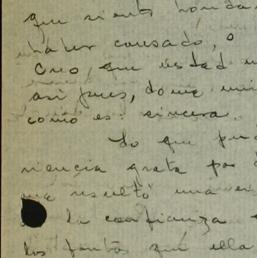 que siento honda
haber causado, o
Creo, que usted
así pues, dome
como es sincera.
Lo que pu
riencia grata por
me resultó una ex
la confianza
los fontos que ella